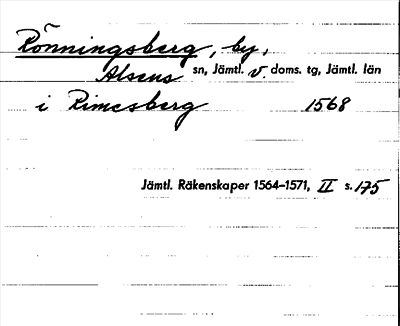 Rönningsberg, by,
Alsens sn, Jämtl. v. doms. tg, Jämtl. län
i Rimesberg 1568
Jämtl. Räkenskaper 1564–1571, II s. 175